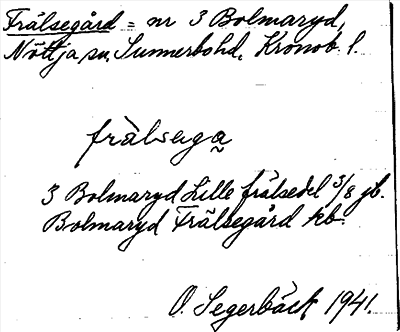 Frälsegård = nr 3 Bolmaryd,
Nöttja sn, Sunnerbo hd, Kronob. l.
frälsega
3 Bolmaryd Lille frälsedel 3/8 jb.
Bolmaryd Frälsegård kb.
O. Segerbäck 1941.